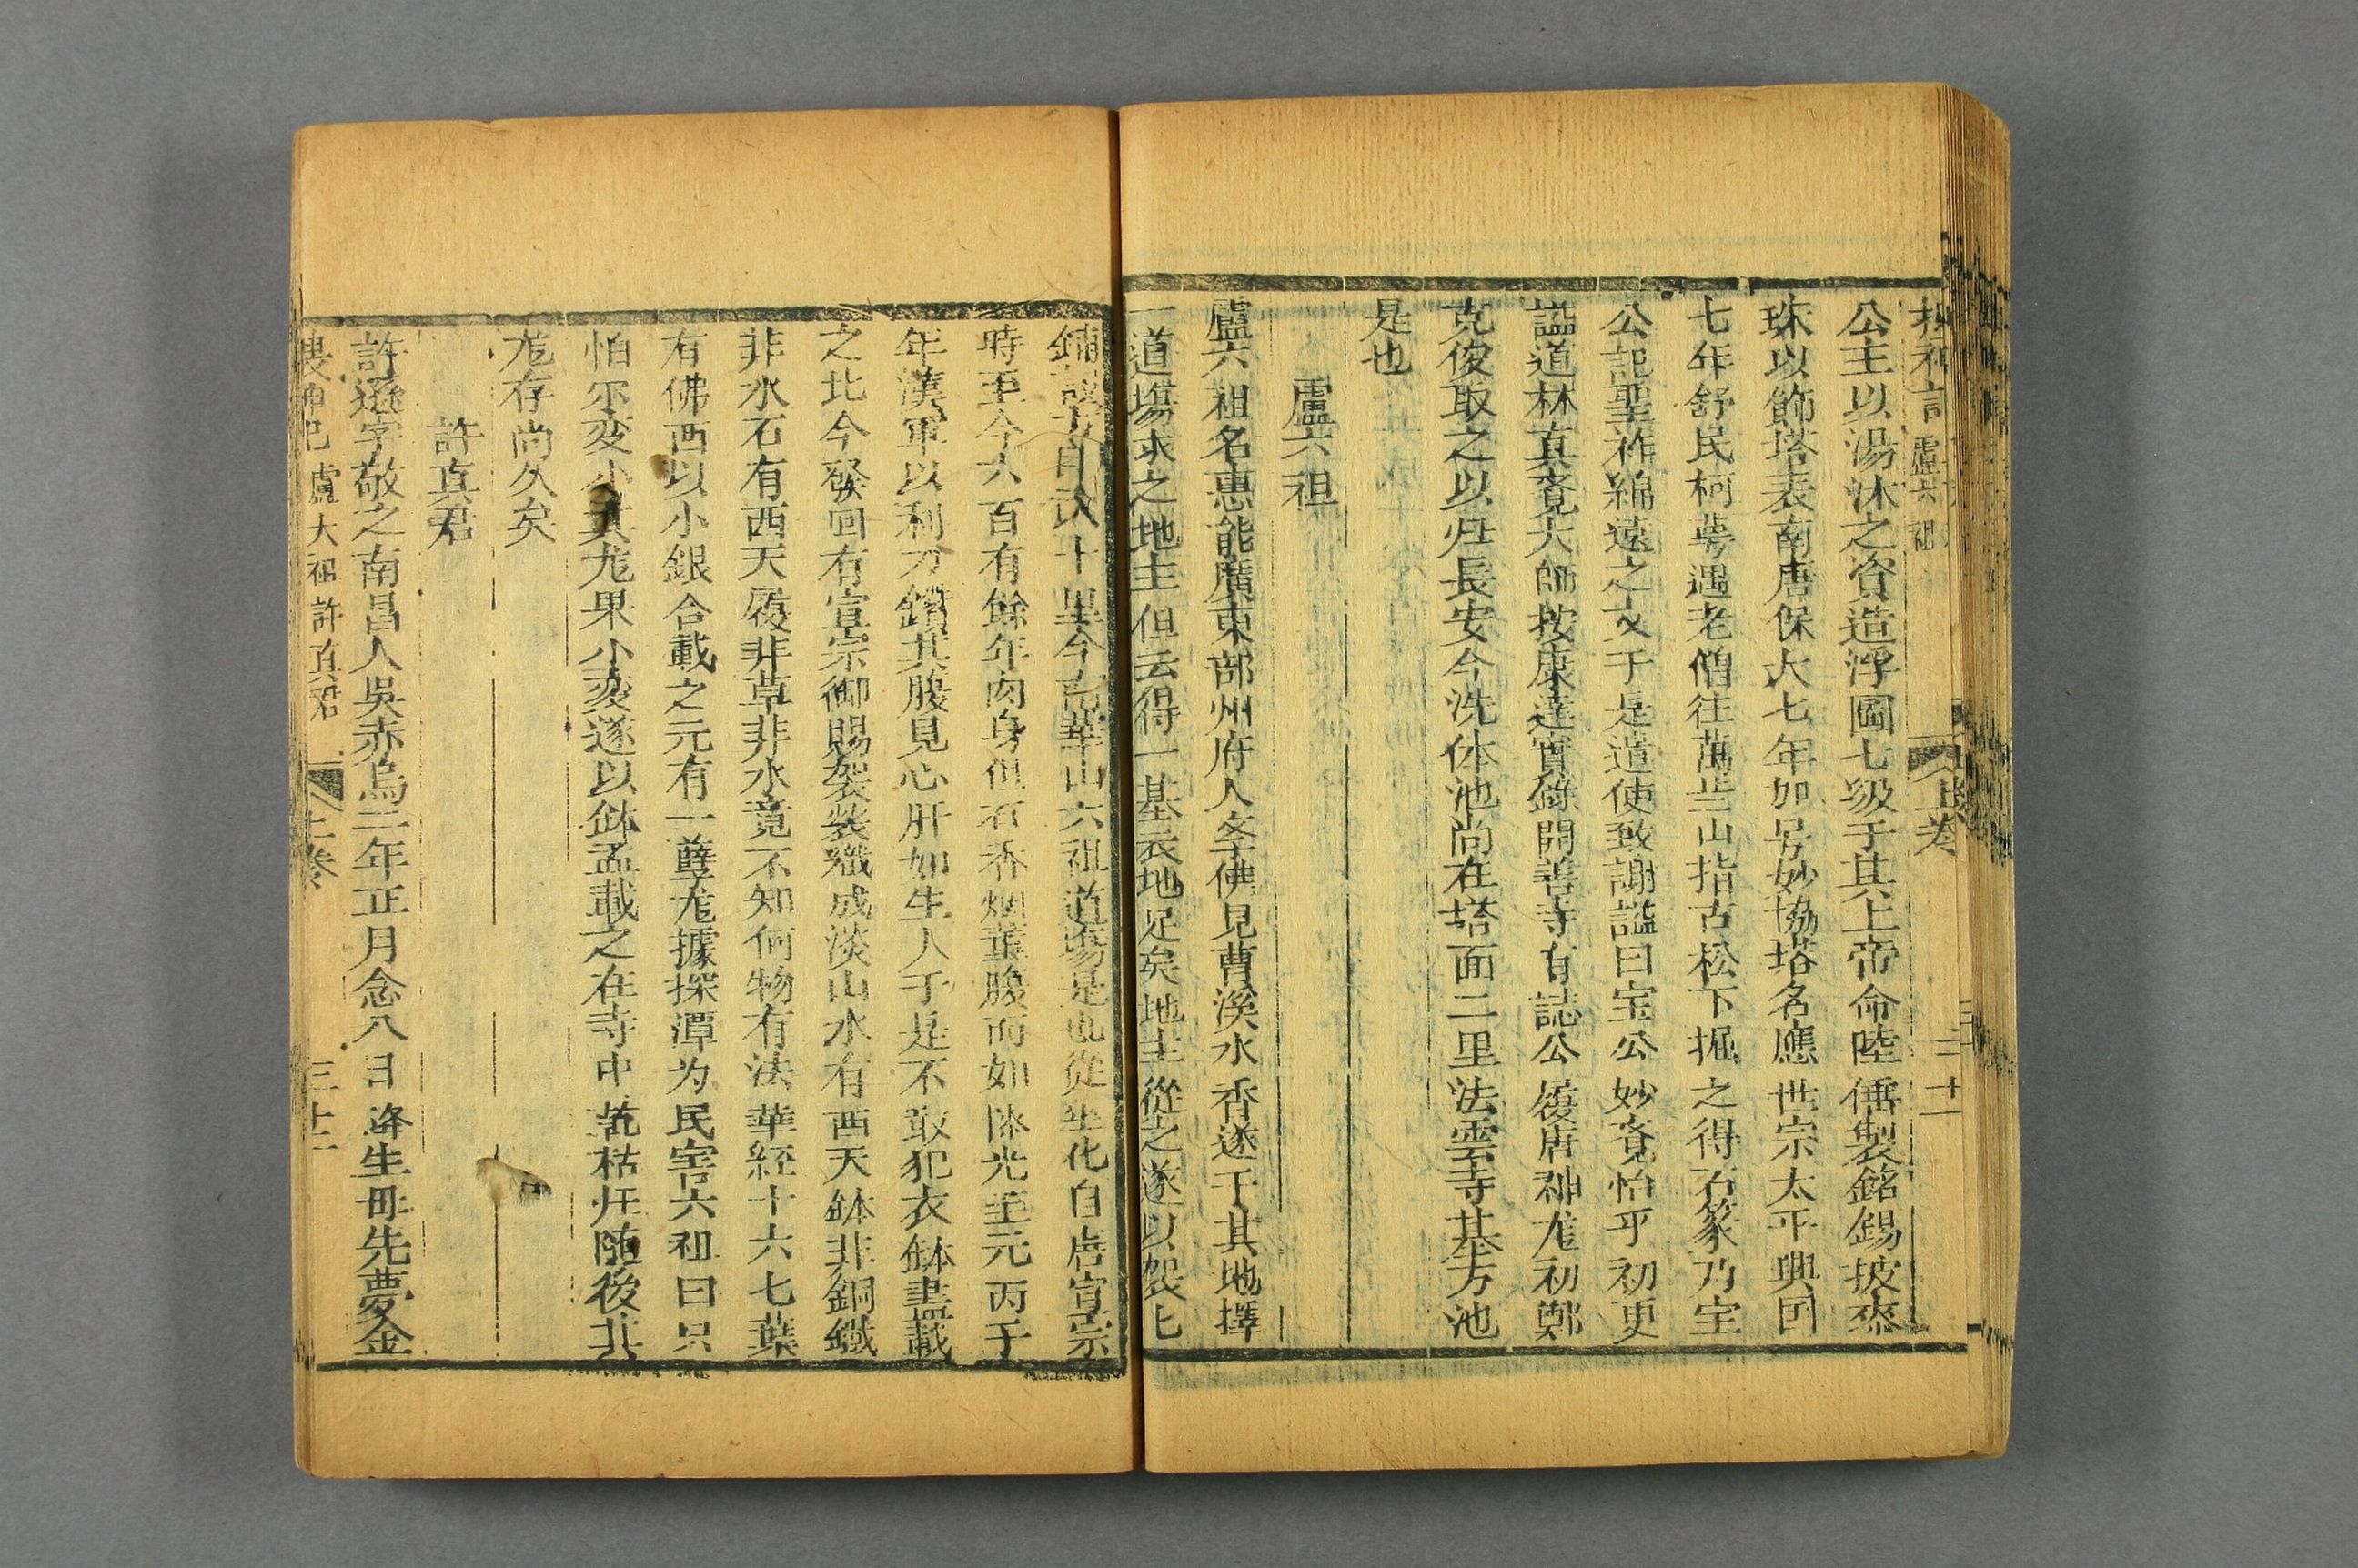 盧六祖 上卷 三十一
公主以湯沐之資造浮圖七級于其上帝命陸倕製銘錫披來
珠以飾塔表南唐保大七年加号妙協塔名應世宗太平興囯
七年舒民柯萼遇老僧往萬岁山指古松下掘之得石篆乃宝
公記聖祚綿遠之文于是道使致謝謚曰宝公妙覔怡乎初更
謚道林真覔大師按康達實錄開善寺有誌公履唐神尨初鄭
克俊取之以归長安今洗体池尚在塔面二里法雲寺基方池
是也
盧六祖
盧六祖名惠能廣東部州府人学佛見曹溪水香遂于其地擇
一道塲求之地主但云得一基衣地足矣地主從之遂以袈七
鋪 十里今南華山六祖道塲是也從坐化自唐宣宗
時至今六百有餘年肉身但石香烟薰腹而如漆光至元丙子
年漢軍以利刀鑽其腹見心肝如生人于是不敢犯衣鉢盡載
之北今發回有宣宗御賜袈裟織成淡山水有西天鉢非銅鐵
非水石有西天履非草非水竟不知何物有法華経十六七葉
有佛西以小銀合載之元有一孽尨據深潭为民害六祖曰只
怕尔変小其尨果小変遂以鉢盂載之在寺中乾枯归随後其
尨存尚久矣
許真君
許遜字敬之南昌人吳赤烏二年正月念八日降生母先夢金
搜神記 盧大祖 許真君 上卷 三十二